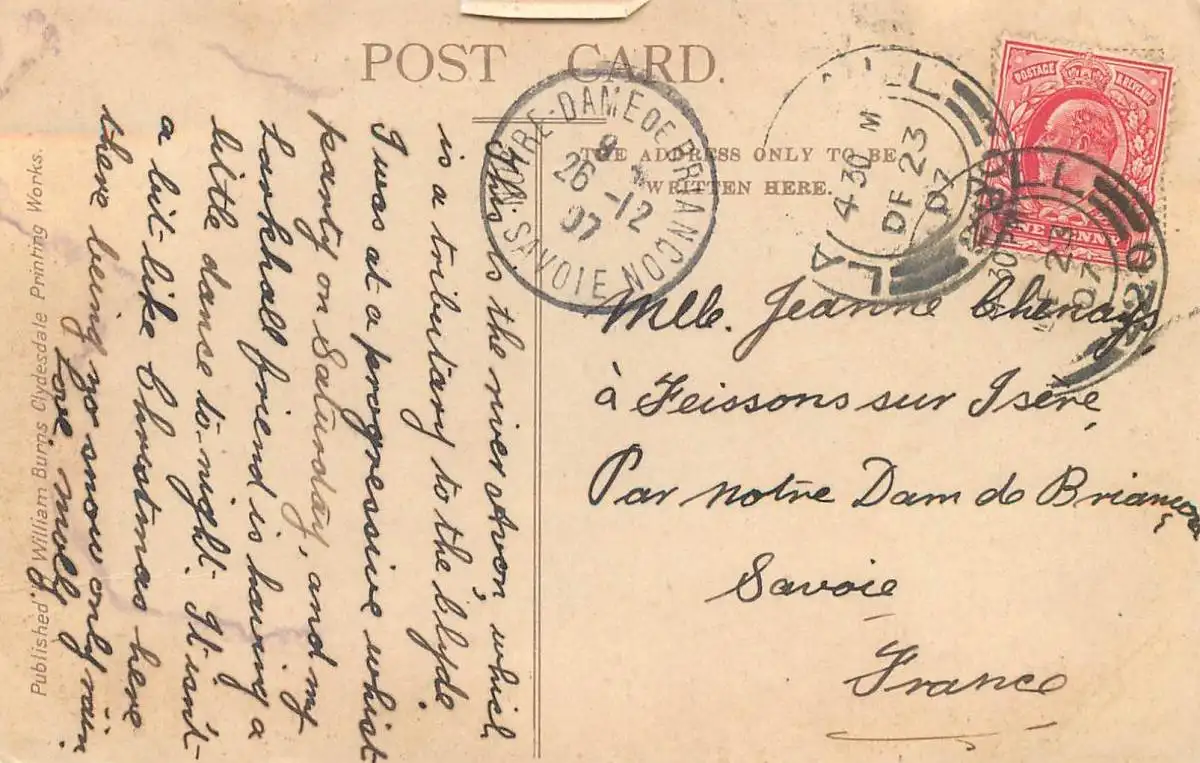 POST CARD.
THE ADDRESS ONLY TO BE
WRITTEN HERE.
This is the river Avon, which
is a tributary to the Clyde.
I was at a progressive whist
party on Saturday, and my
Larkhall friend is having a
little dance to-night. It isn't
a bit like Christmas here
there being no snow only rain.
Love, Molly
Published William Burns Clydesdale Printing Works.
Mlle. Jeanne Chenays
à Feissons sur Isére
Par notre Dam de Briançon
Savoie
France
NOTRE-DAME DE BRIANCON
8
26 -12
07
SAVOIE
LL
4 30 M
DE 23
07
LA
LL
30 PM
DE 23
07
920
POSTAGE & REVENUE
ONE PENNY